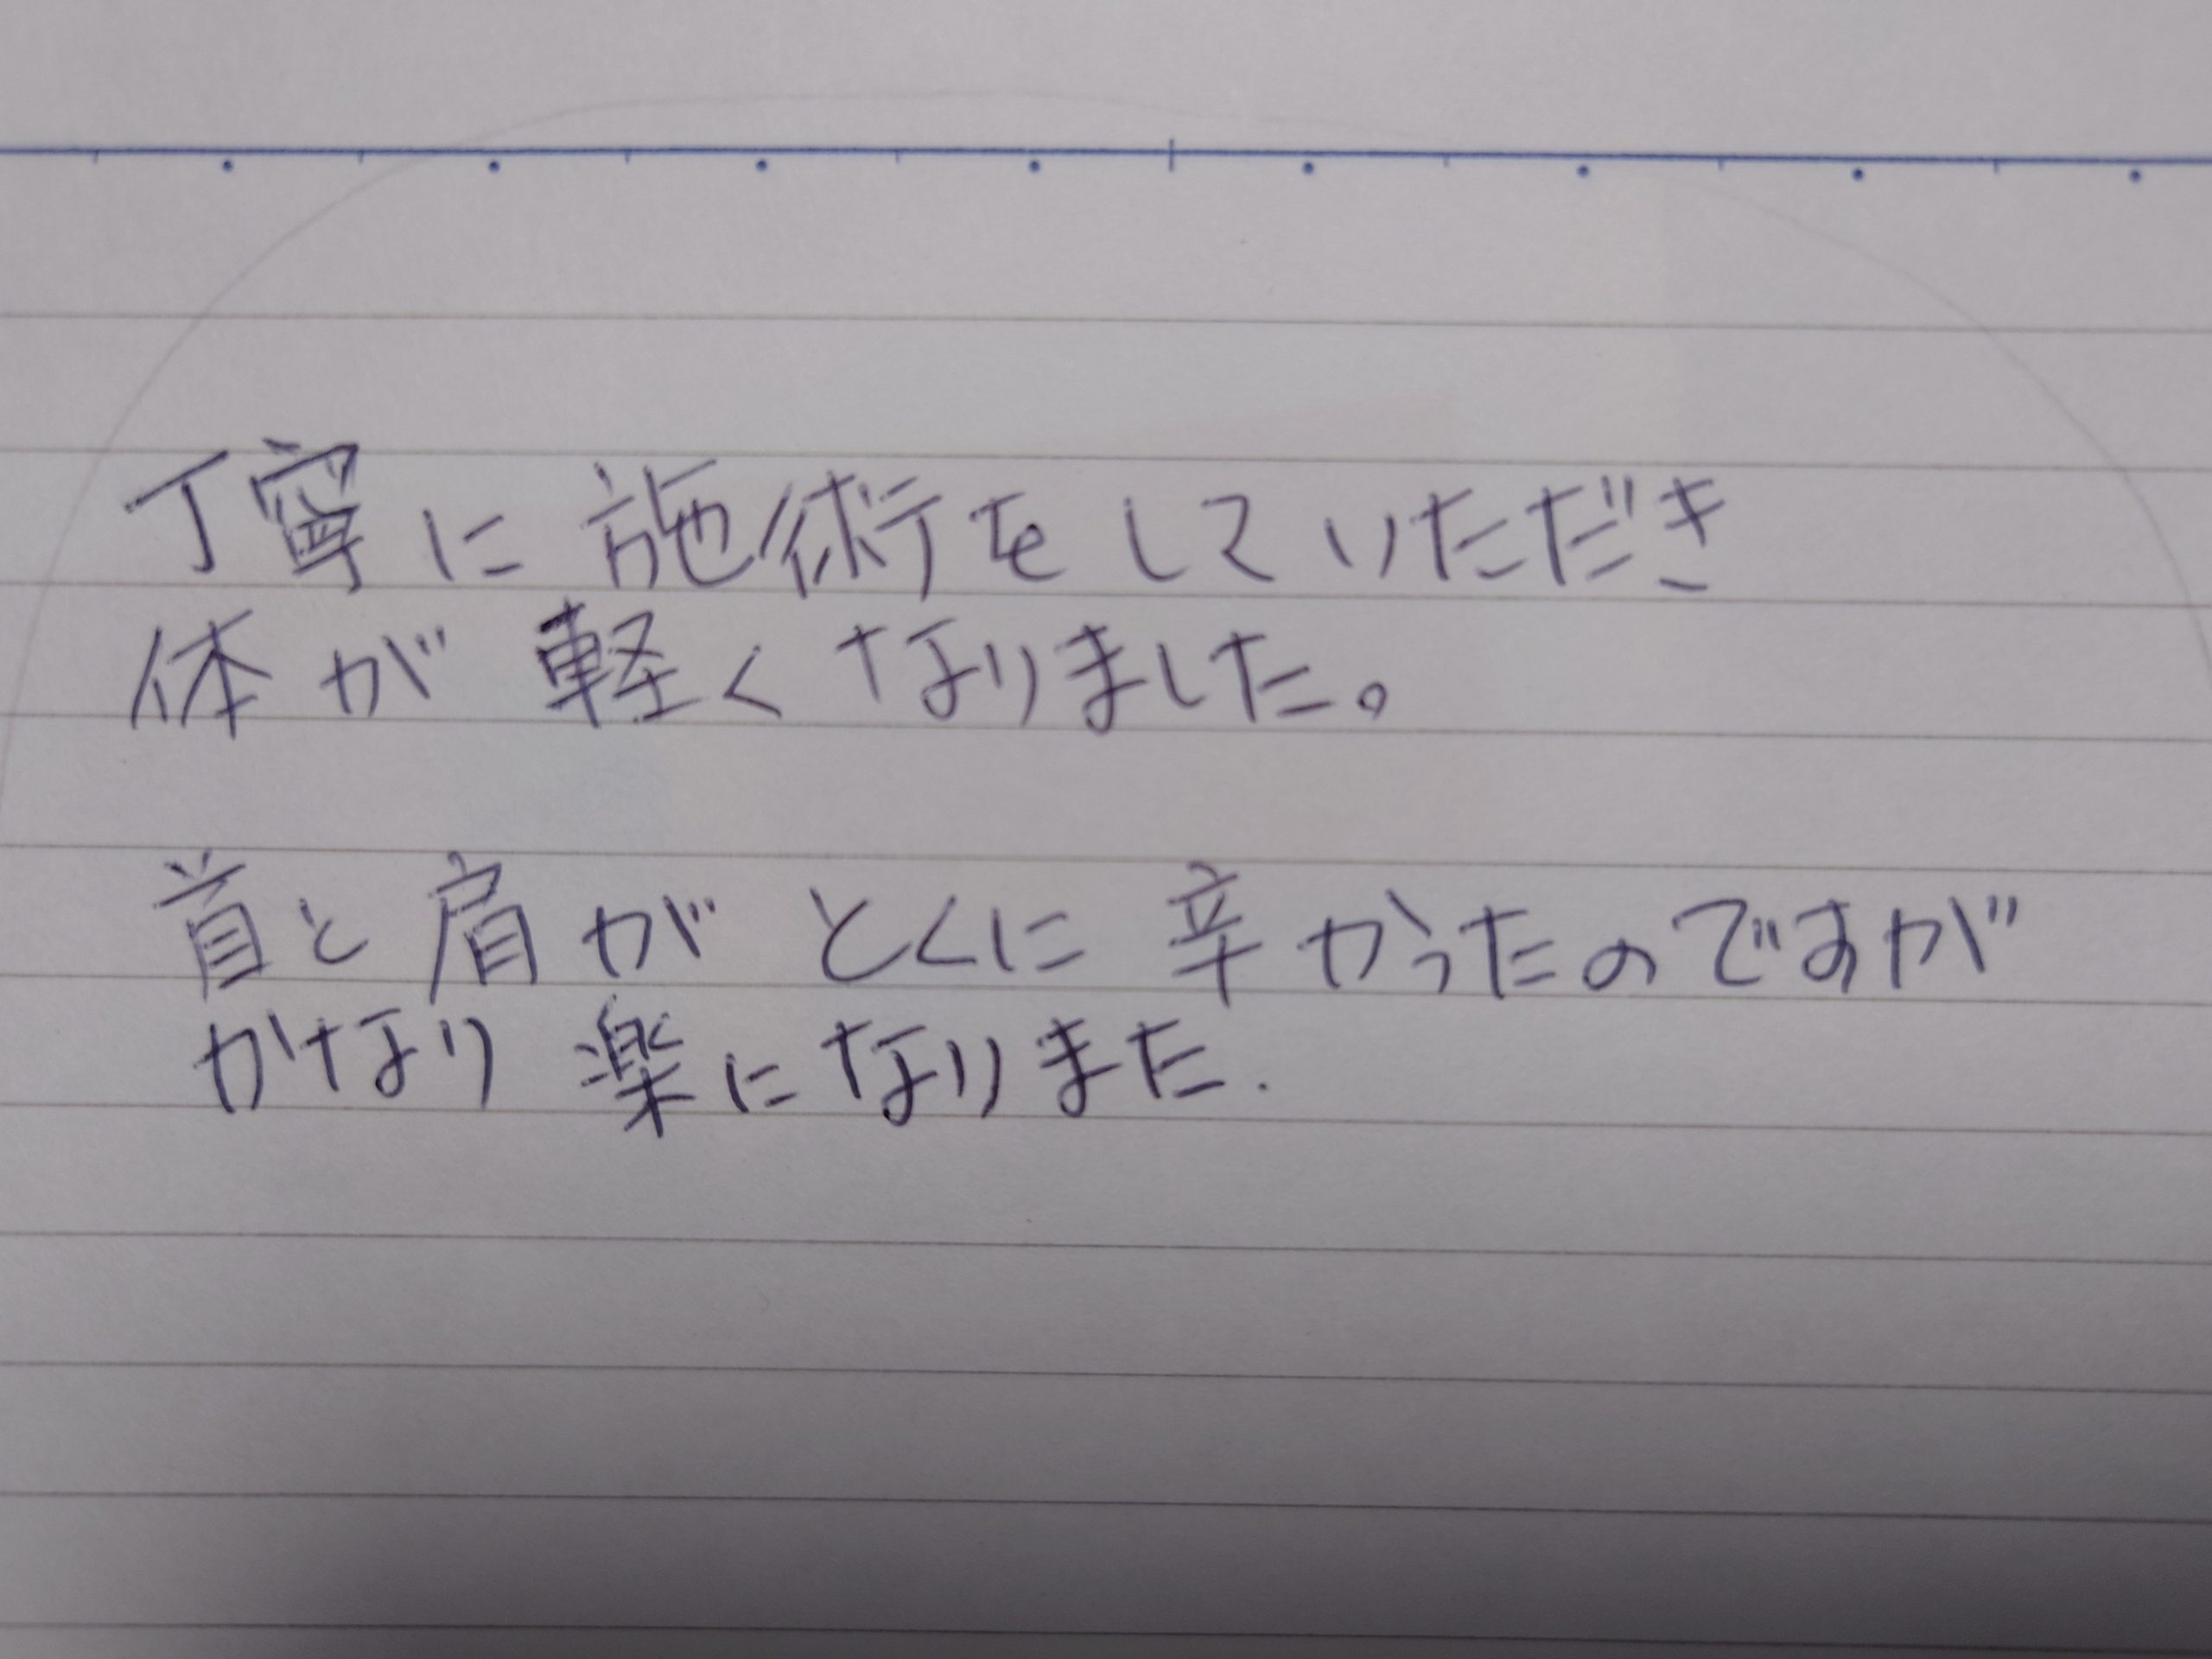 丁寧に施術をしていただき
体が軽くなりました。
首と肩がとくに辛かったのですが
かなり楽になりまた.